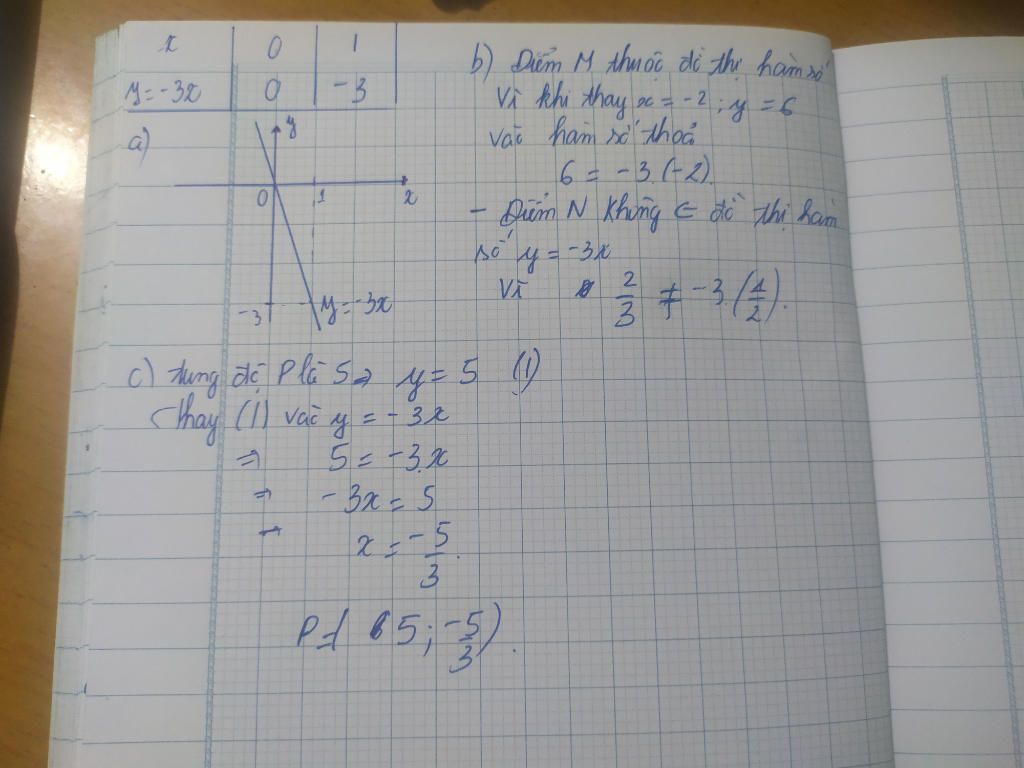 x 0 1
y = -3x 0 -3
a)
y
0 1 x
-3
y = -3x
b) Điểm M thuộc đồ thị hàm số
Vì khi thay x = -2 ; y = 6
vào hàm số thoả
6 = -3.(-2).
- Điểm N không ∈ đồ thị hàm
số y = -3x
Vì 2/3 ≠ -3.(1/2).
c) tung độ P là 5 ⇒ y = 5 (1)
thay (1) vào y = -3x
⇒ 5 = -3.x
⇒ -3x = 5
x = -5/3.
P = (5 ; -5/3).